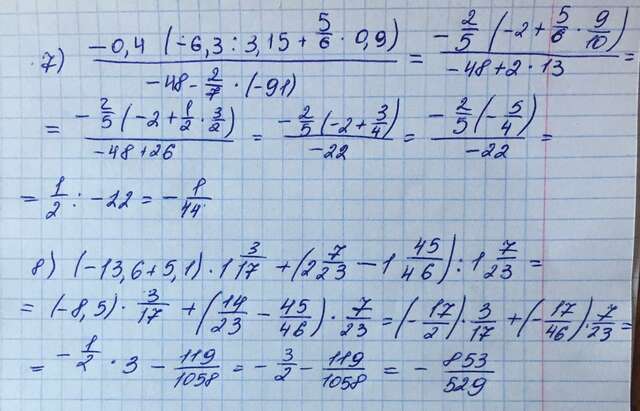 7) (-0,4 (-6,3 : 3,15 + 5/6 · 0,9)) / (-48 - 2/7 · (-91)) = (-2/5 (-2 + 5/6 · 9/10)) / (-48 + 2 · 13) =
= (-2/5 (-2 + 1/2 · 3/2)) / (-48 + 26) = (-2/5 (-2 + 3/4)) / (-22) = (-2/5 (-5/4)) / (-22) =
= 1/2 : -22 = - 1/44
8) (-13,6 + 5,1) · 1 3/17 + (2 7/23 - 1 45/46) : 1 7/23 =
= (-8,5) · 3/17 + (14/23 - 45/46) · 7/23 = (-17/2) · 3/17 + (-17/46) · 7/23 =
= -1/2 · 3 - 119/1058 = - 3/2 - 119/1058 = - 853/529